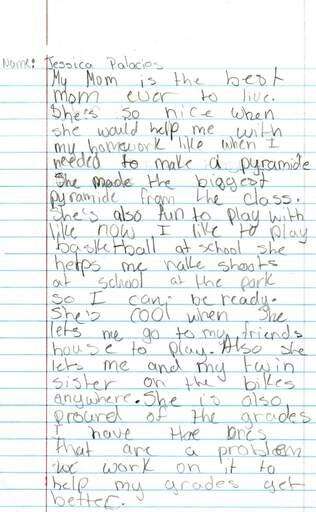 Name: Jessica Palacios
My Mom is the best
mom ever to live.
She's so nice when
she would help me with
my homework like when I
needed to make a pyramide
She made the biggest
pyramide from the class.
She's also fun to play with
like now I like to play
basketball at school she
helps me make shoots
at school at the park
so I can be ready.
She's cool when she
lets me go to my friends
house to play. Also she
lets me and my twin
sister on the bikes
anywhere. She is also
preured of the grades
I have the ones
that are a problem
we work on it to
help my grades get
better.